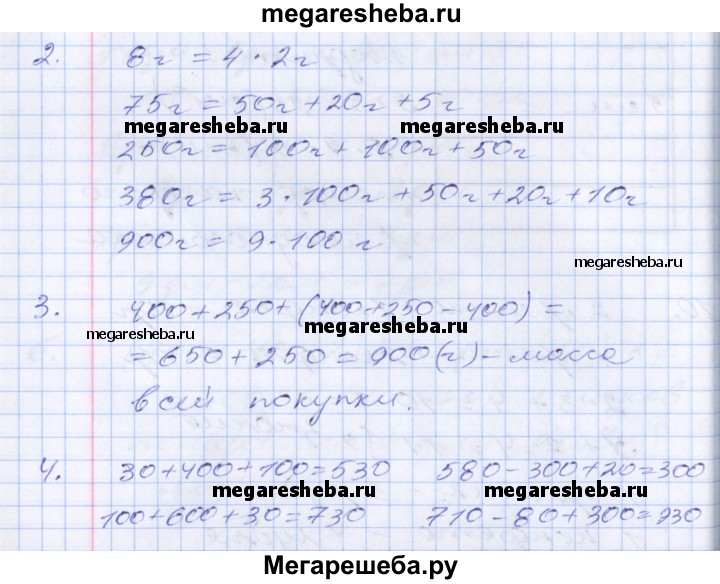 megaresheba.ru
2. 8г = 4 · 2г
75г = 50г + 20г + 5г
megaresheba.ru megaresheba.ru
250г = 100г + 100г + 50г
380г = 3 · 100г + 50г + 20г + 10г
900г = 9 · 100 г
megaresheba.ru
3. 400 + 250 + (400 + 250 - 400) =
megaresheba.ru megaresheba.ru
= 650 + 250 = 900 (г) - масса
всей покупки.
4. 30 + 400 + 100 = 530 580 - 300 + 20 = 300
megaresheba.ru megaresheba.ru
100 + 600 + 30 = 730 710 - 80 + 300 = 930
Мегарешеба.ру